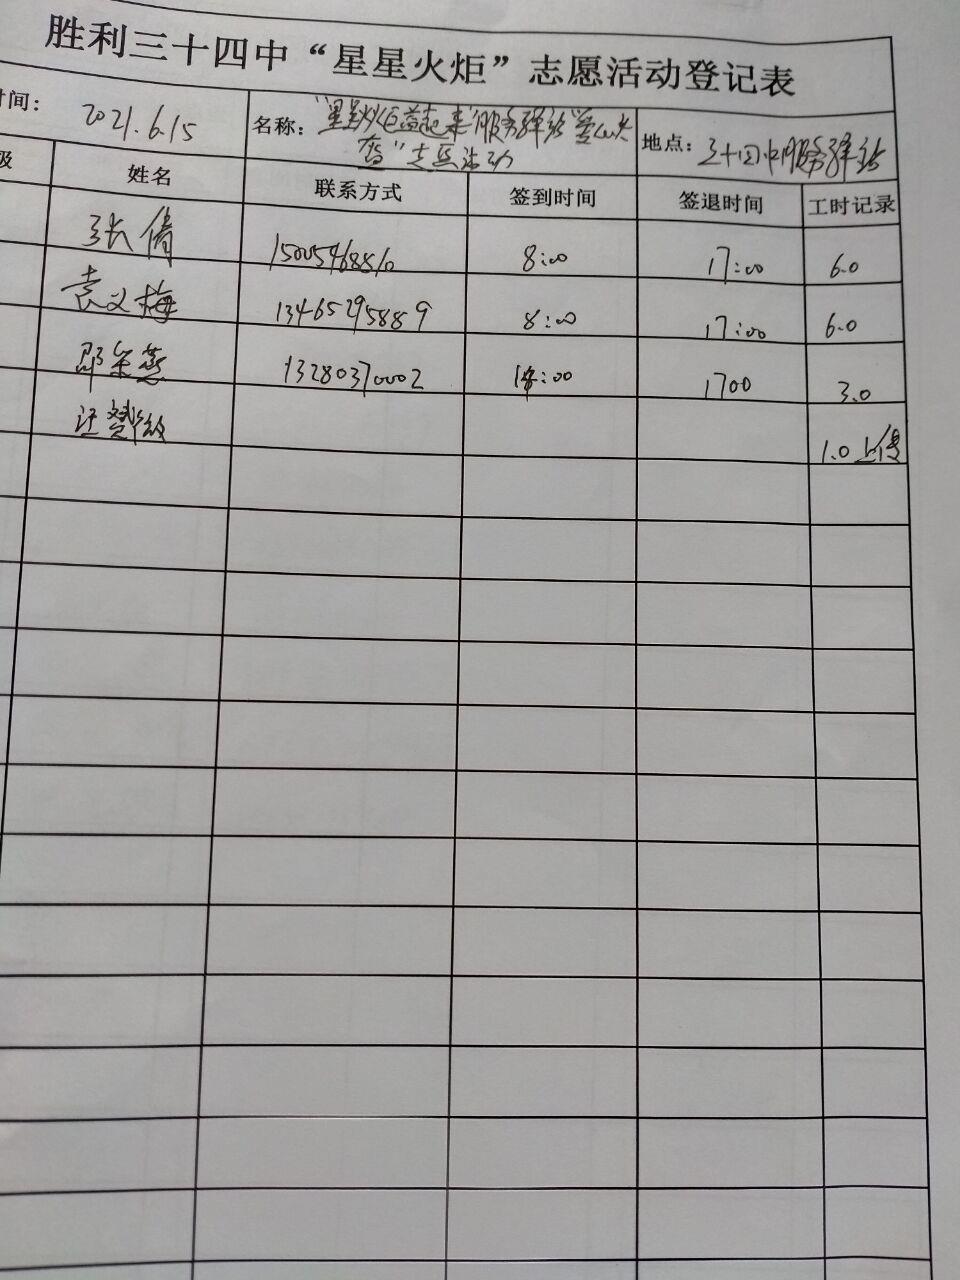 胜利三十四中“星星火炬”志愿活动登记表
时间： 2021.6.15 名称： “星星火炬益起来”服务驿站“爱心 地点： 三十四中服务驿站
”志愿活动
级 姓名 联系方式 签到时间 签退时间 工时记录
张倩 15005468810 8:00 17:00 6.0
袁义梅 13465295889 8:00 17:00 6.0
邵军燕 13280370002 14:00 1700 3.0
汪赞 1.0 上传